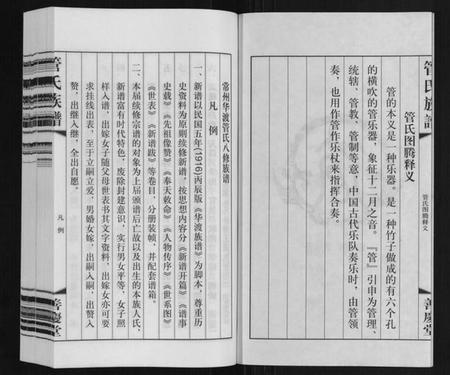 管氏族譜
管氏图腾释义
善慶堂
管氏图腾释义
管的本义是一种乐器。是一种竹子做成的有六个孔
的横吹的管乐器，象征十二月之音。『管』引申为管理、
统辖、管教、管制等意，中国古代乐队奏乐时，由管领
奏，也用作管作乐杖来指挥合奏。
常州华渡管氏八修族谱
凡例
一、新谱以民国五年(1916)丙辰版《华渡族谱》为脚本，尊重历
史资料为原则续修新谱，按思想内容分《新谱开篇》《谱事
史载》《先祖像赞》《奉天敕命》《人物传序》《世系图》
《世表》《新谱跋》等卷目，分册装帧，并配套谱箱。
二、本届续修宗谱的对象为上届颁谱后亡故以及出生的本族人氏，
新谱富有时代特色，废除封建意识，实行男女平等，女子照
样入谱，出嫁女子随父母世表书其文字资料，出嫁女亦可要
求挂线出表，至于立嗣立爱，男婚女嫁，出嗣入嗣，出赘入
赘，出继入继，全出自愿。
管氏族谱
凡例
善慶堂